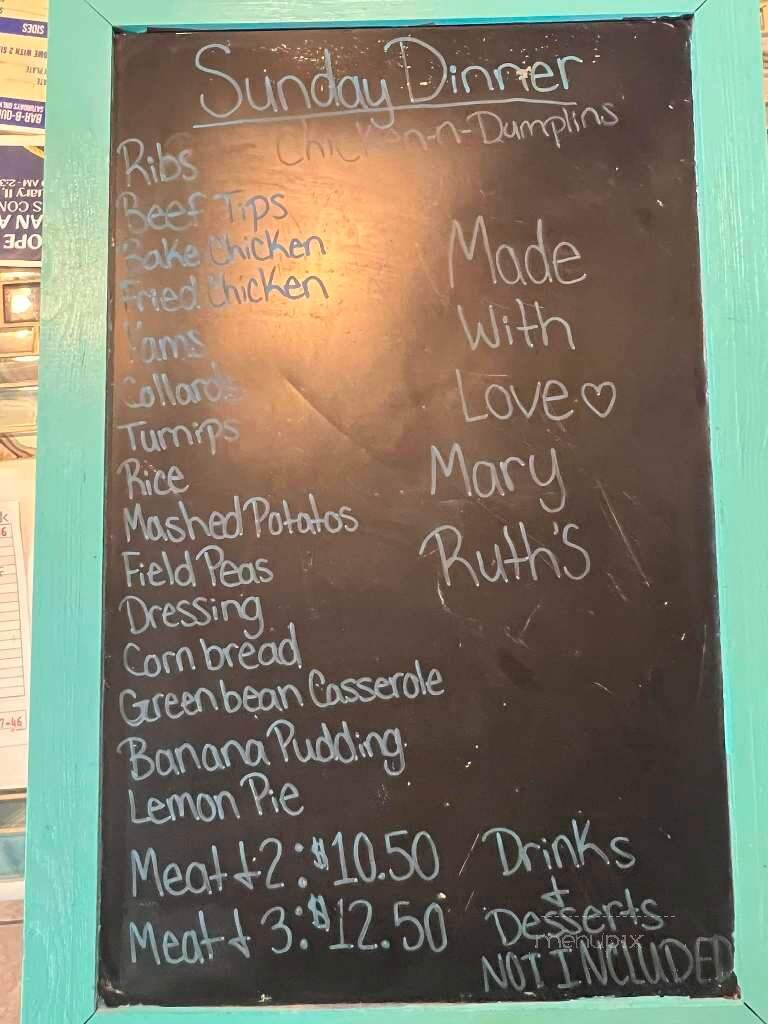 Sunday Dinner
Chicken-n-Dumplins
Ribs
Beef Tips
Bake Chicken
Fried Chicken
Yams
Collards
Turnips
Rice
Mashed Potatos
Field Peas
Dressing
Corn bread
Green bean Casserole
Banana Pudding
Lemon Pie
Made
With
Love♡
Mary
Ruth's
Meat + 2: $10.50
Meat + 3: $12.50
Drinks
+
Desserts
NOT INCLUDED
menupix
SIDES
BAR-B-QUE